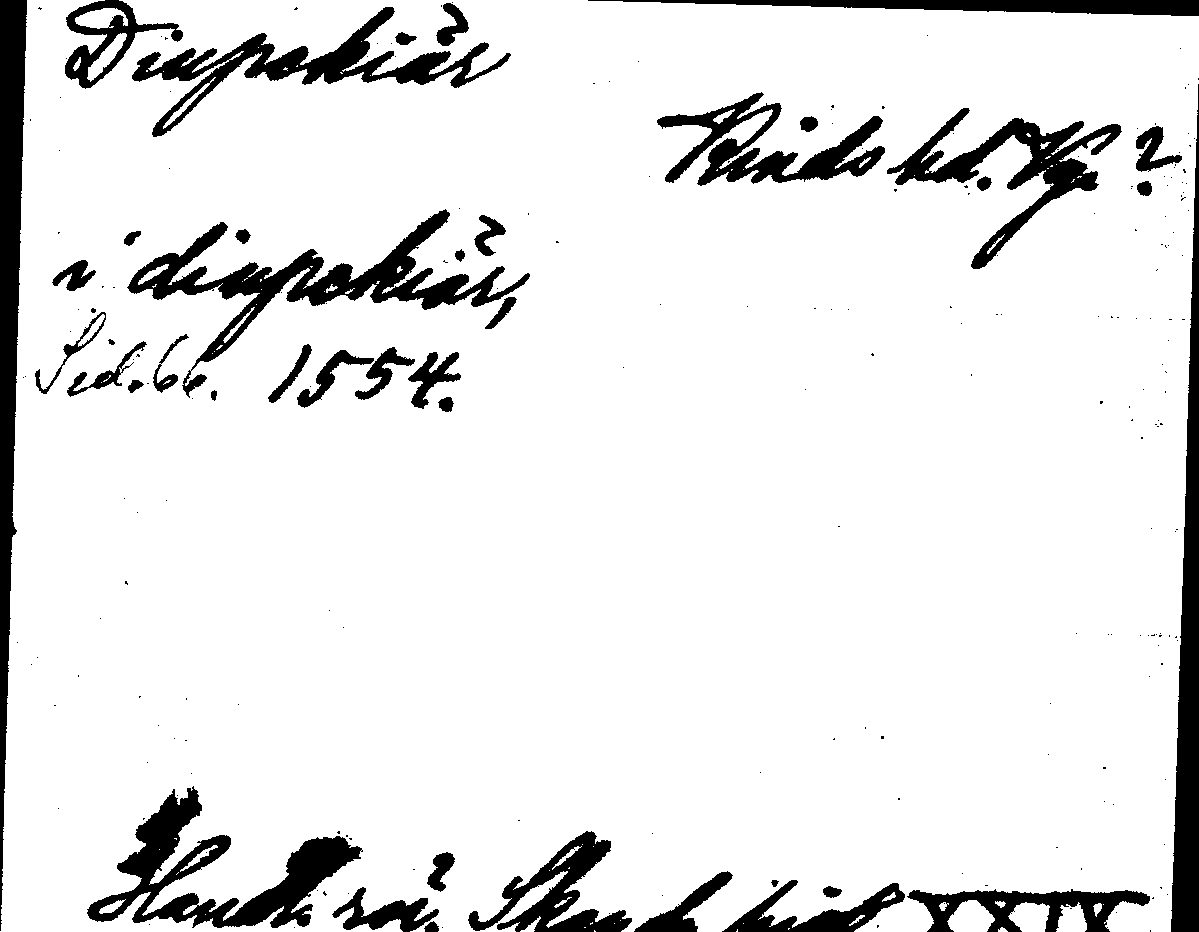 Diupekiär
Kinds hd. Vg. ?
i diupekiär,
Sid. 66. 1554.
Handl. rör. Skand. hist. XXIX